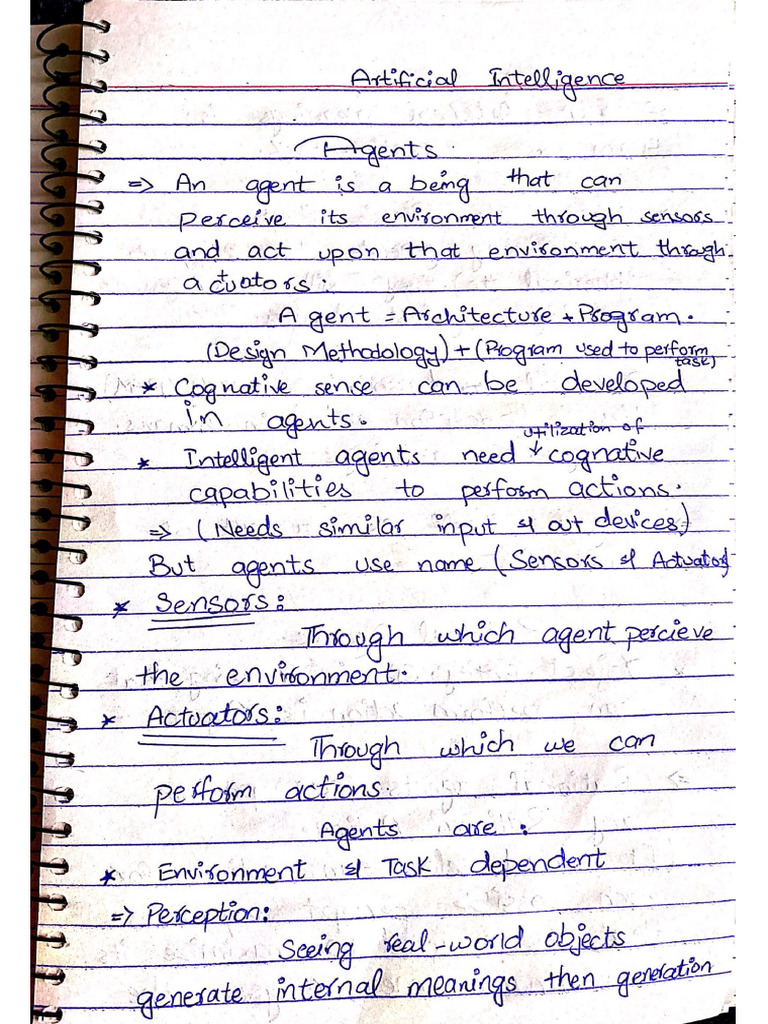 Artificial Intelligence
Agents.
=> An agent is a being that can
perceive its environment through sensors
and act upon that environment through
actuators.
Agent = Architecture + Program.
(Design Methodology) + (Program used to perform
task)
* Cognative sense can be developed
in agents.
utilization of
* Intelligent agents need ↓ cognative
capabilities to perform actions.
=> (Needs similar input & out devices)
But agents use name (Sensors & Actuator)
* Sensors:
Through which agent percieve
the environment.
* Actuators:
Through which we can
perform actions.
Agents are:
* Environment & Task dependent
=> Perception:
Seeing real-world objects
generate internal meanings then generation